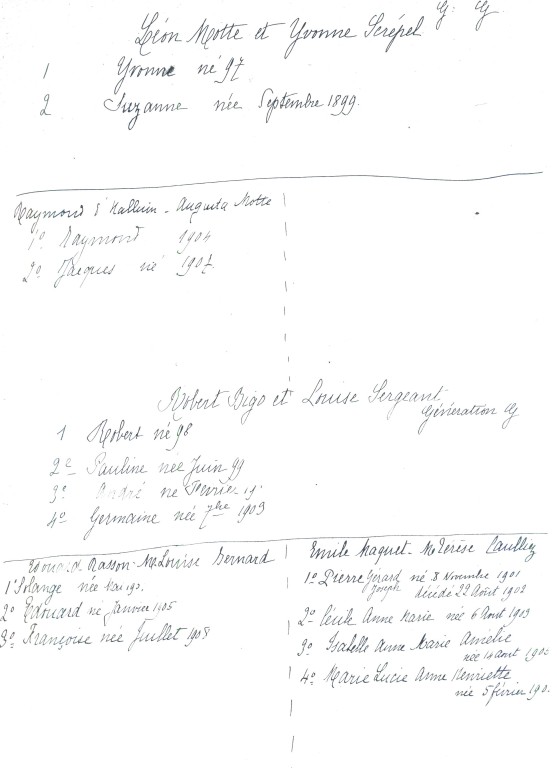 G: G
Léon Motte et Yvonne Scrépel
1 Yvonne né 97
2 Suzanne née Septembre 1899.
Raymond d'Halluin - Augusta Motte
1º Raymond 1904
2º Jacques né 1907.
Robert Bigo et Louise Sergeant
Génération G
1 Robert né 98
2e Pauline née Juin 99
3º André né Février
4º Germaine née 7bre 1903
Edouard Rasson - M. Louise Bernard
1º Solange née
2º Edouard né Janvier 1905
3º Françoise née Juillet 1908
Emile Maquet - M Térèse Caulliez
1º Pierre Gérard né 8 Novembre 1901
Joseph décédé 22 Août 1902
2º Cécile Anne Marie née 6 Aout 1903
3º Isabelle Anne Marie Amélie
née 14 aout
4º Marie Lucie Anne Henriette
née 5 février